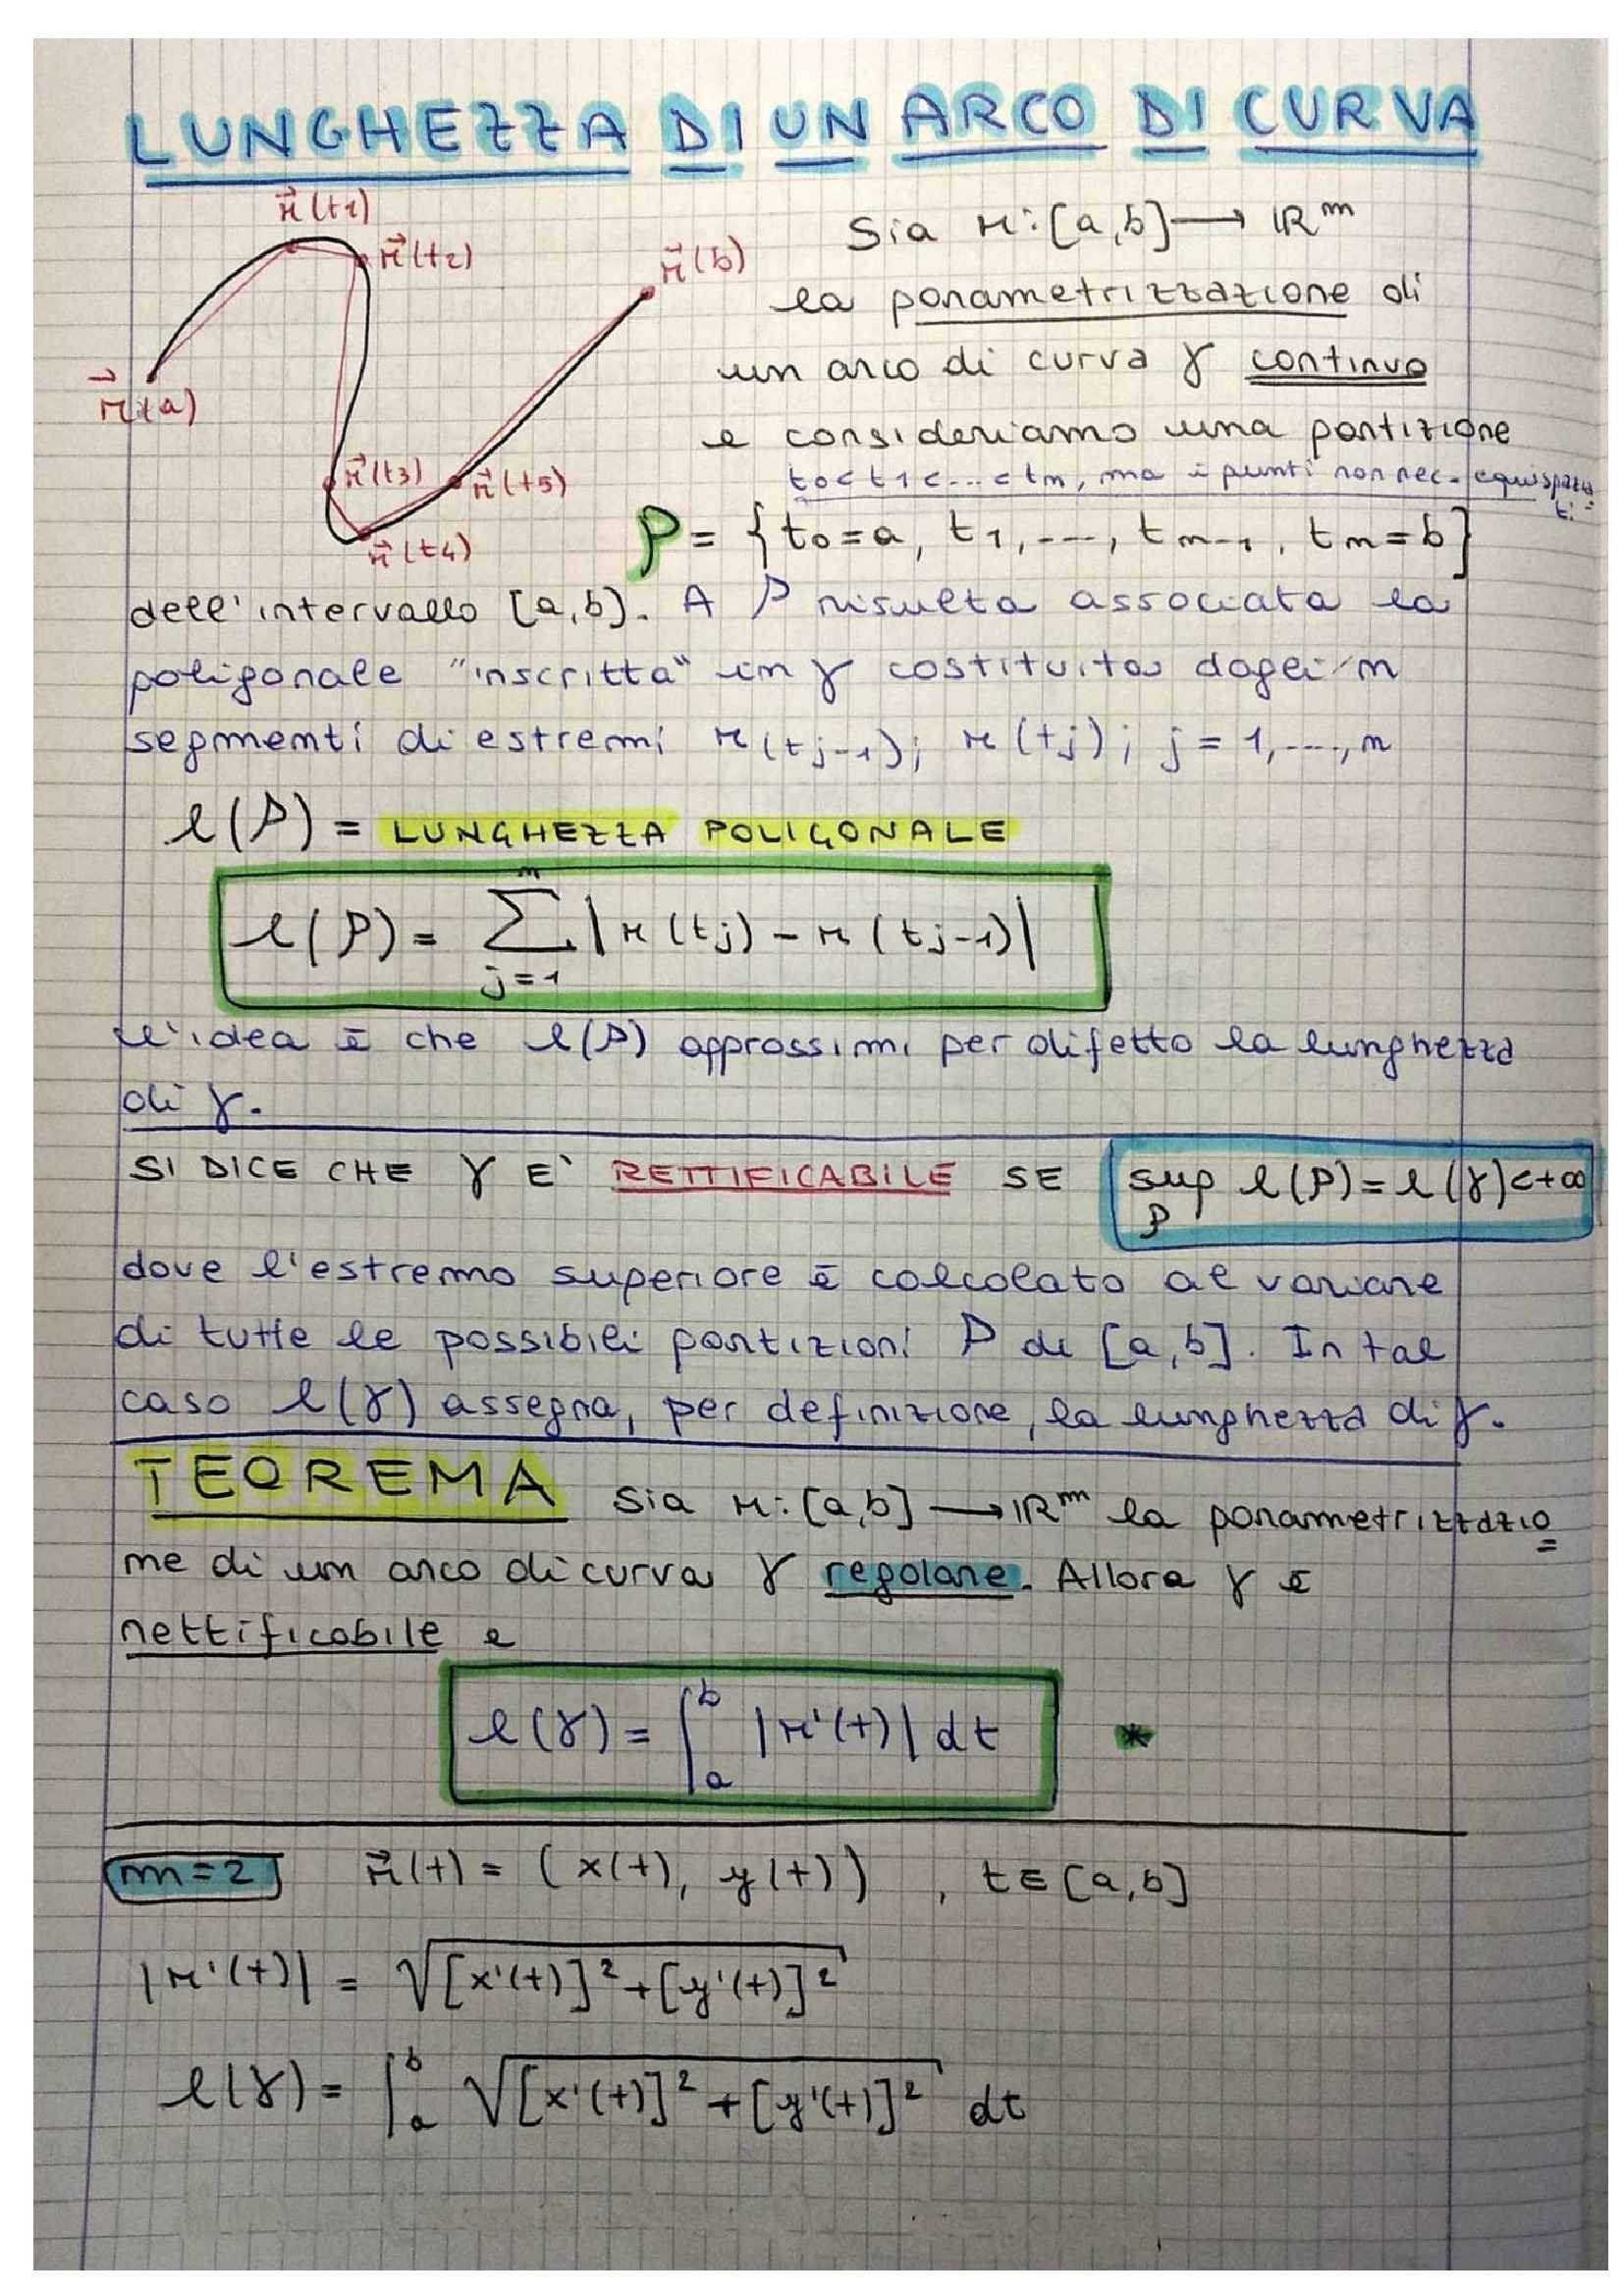 LUNGHEZZA DI UN ARCO DI CURVA
r⃗(t1)
r⃗(t2)
r⃗(b)
r⃗(a)
r⃗(t3)
r⃗(t5)
r⃗(t4)
Sia r:[a,b]→ℝᵐ
la parametrizzazione di
un arco di curva γ continuo
e consideriamo una partizione
t0<t1<...<tn, ma i punti non nec. equispazia=
ti
P = {t0=a, t1,---, tn-1, tn=b}
dell'intervallo [a,b]. A P risulta associata la
poligonale "inscritta" in γ costituita dagli n
segmenti di estremi r(tj-1); r(tj); j=1,---,n
l(P) = LUNGHEZZA POLIGONALE
l(P) = ∑ⁿj=1 |r(tj) - r(tj-1)|
L'idea è che l(P) approssimi per difetto la lunghezza
di γ.
SI DICE CHE γ E' RETTIFICABILE SE sup P l(P)=l(γ)<+∞
dove l'estremo superiore è calcolato al variare
di tutte le possibili partizioni P di [a,b]. In tal
caso l(γ) assegna, per definizione, la lunghezza di γ.
TEOREMA Sia r:[a,b]→ℝᵐ la parametrizzazio=
ne di un arco di curva γ regolare. Allora γ è
rettificabile e
l(γ) = ∫ₐᵇ |r'(t)| dt *
m=2 r⃗(t) = (x(t), y(t)) , t∈[a,b]
|r'(t)| = √[x'(t)]²+[y'(t)]²
l(γ) = ∫ₐᵇ √[x'(t)]²+[y'(t)]² dt